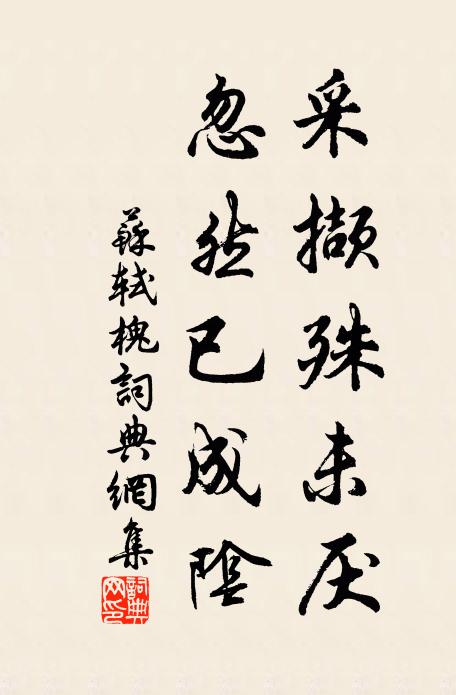 采撷殊未厌
忽然已成陰
蘇軾槐詞典網集
詞典网印